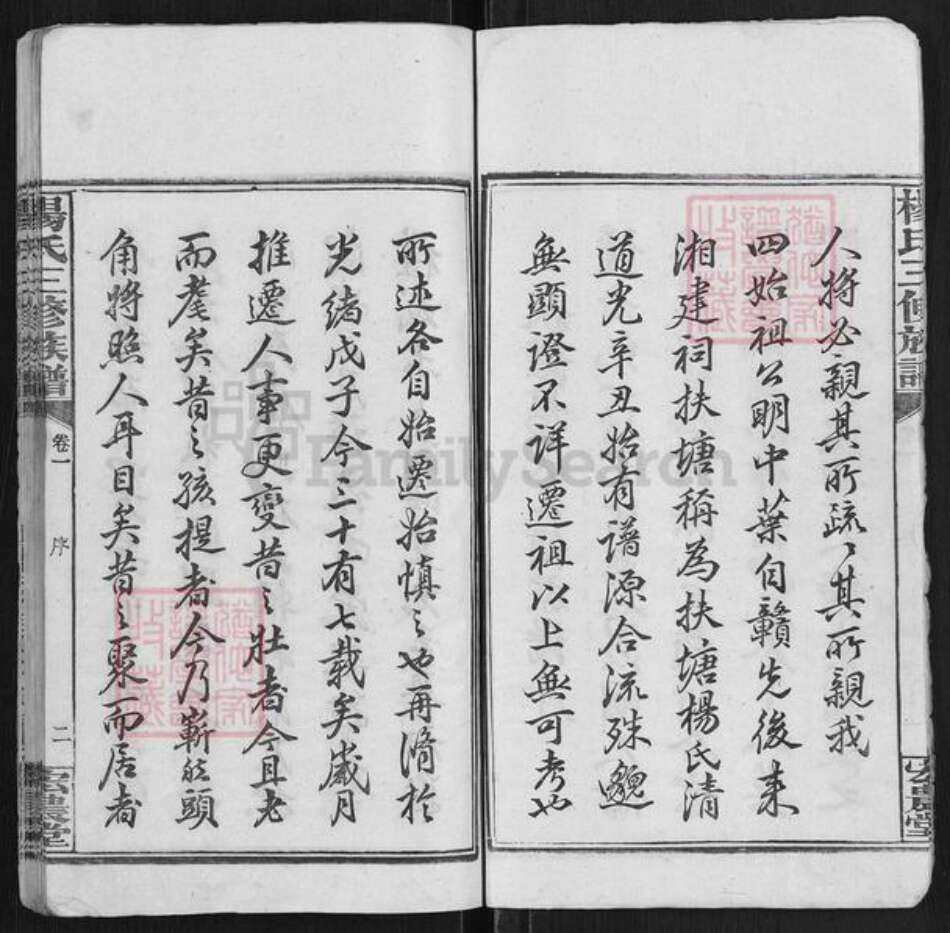 楊氏三修族譜
人將必親其所疏疏其所親我
四始祖公明中葉自贛先後来
湘建祠扶塘稱為扶塘楊氏清
道光辛丑始有譜源合流殊邈
無顯證不詳遷祖以上無可考也
宏農堂
所述各自始遷始慎之也再脩於
光緒戊子今三十有七載矣歲月
推遷人事更變昔之壯者今且老
而耄矣昔之孩提者今乃嶄然頭
角將照人耳目矣昔之聚而居者
楊氏三修族譜
卷一
序
二
宏農堂
FamilySearch